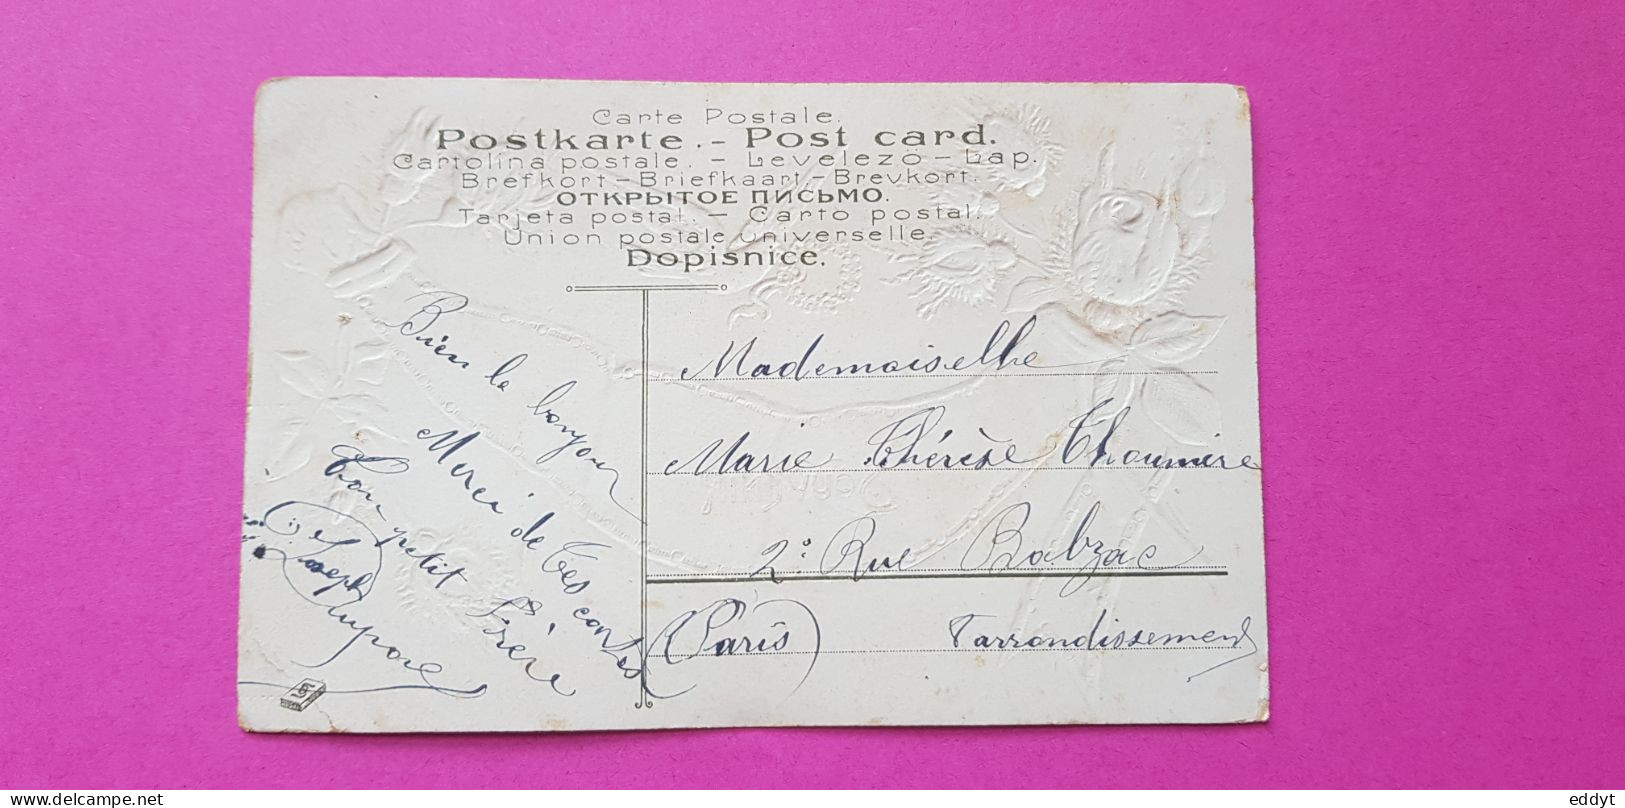 Carte Postale.
Postkarte.- Post card.
Cartolina postale. - Levelezö-Lap.
Brefkort-Briefkaart-Brevkort.
ОТКРЫТОЕ ПИСЬМО.
Tarjeta postal. - Carto postal.
Union postale universelle.
Dopisnice.
Bien le bonjour
Merci de tes cartes
Ton petit Frère
Joseph
Mademoiselle
Marie Thérèse Thoumire
2° Rue Balzac
(Paris) arrondissement
eddyt